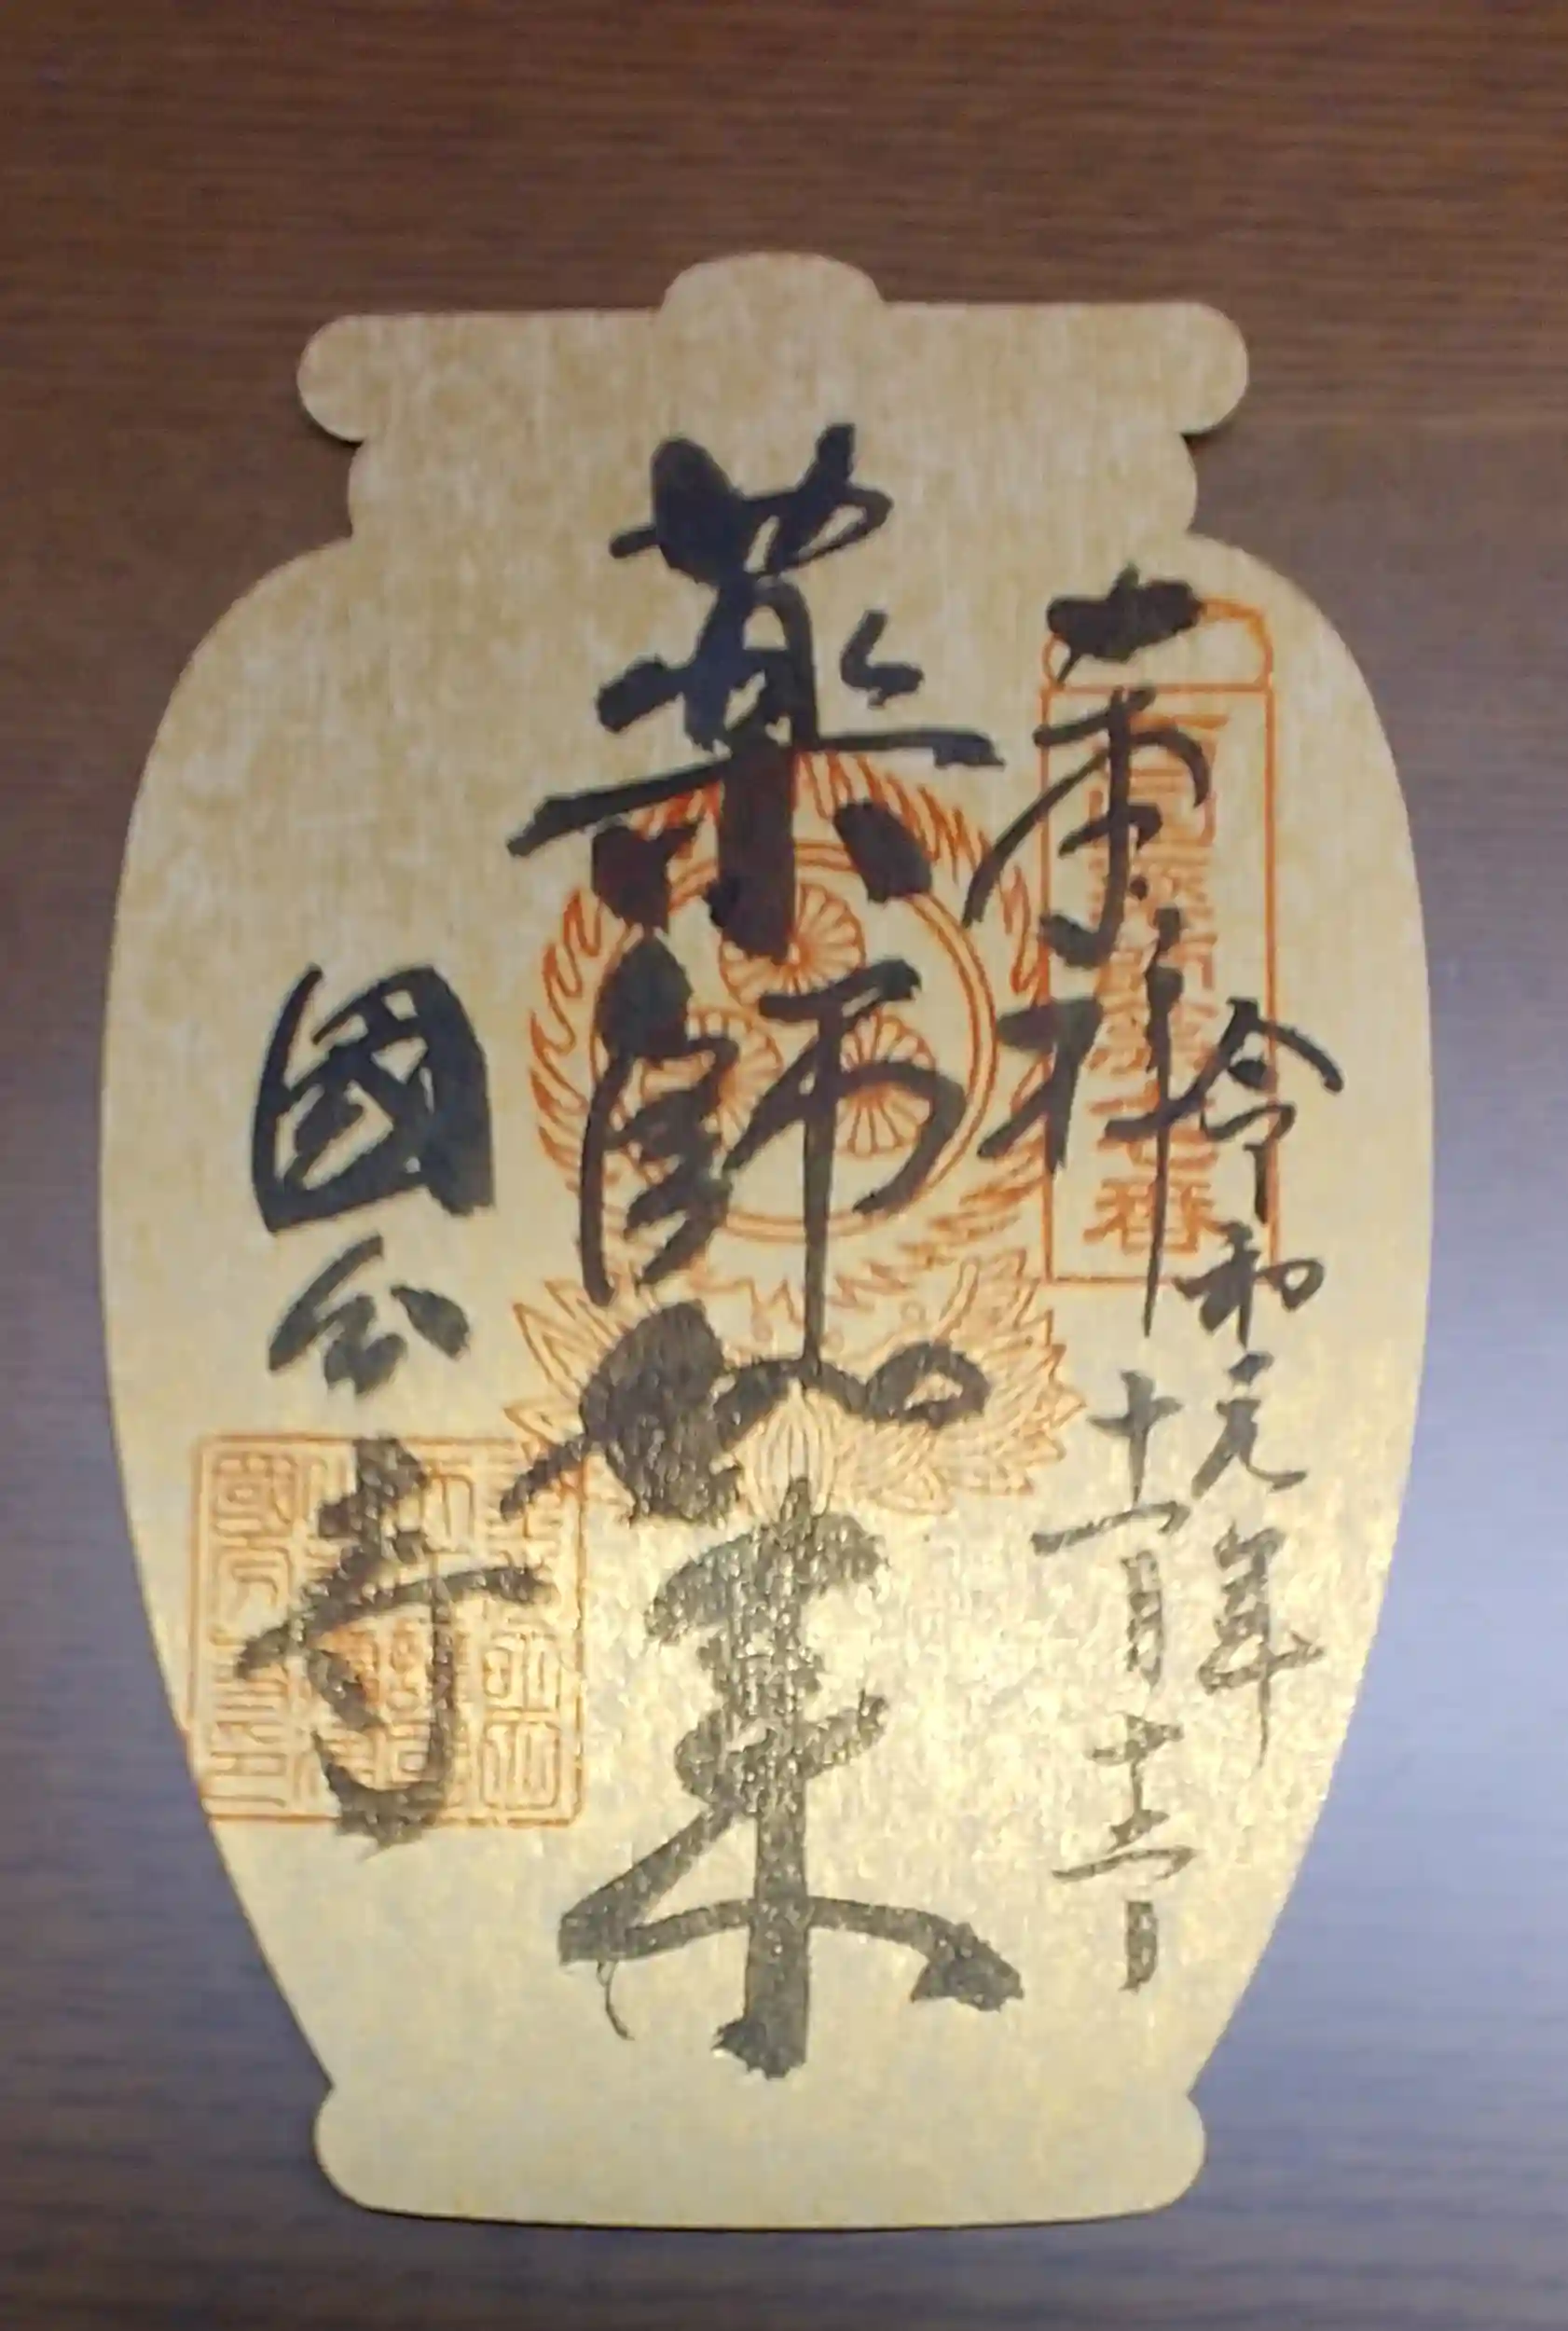 奉拝
令和元年
十一月十二日
薬師如来
國分寺